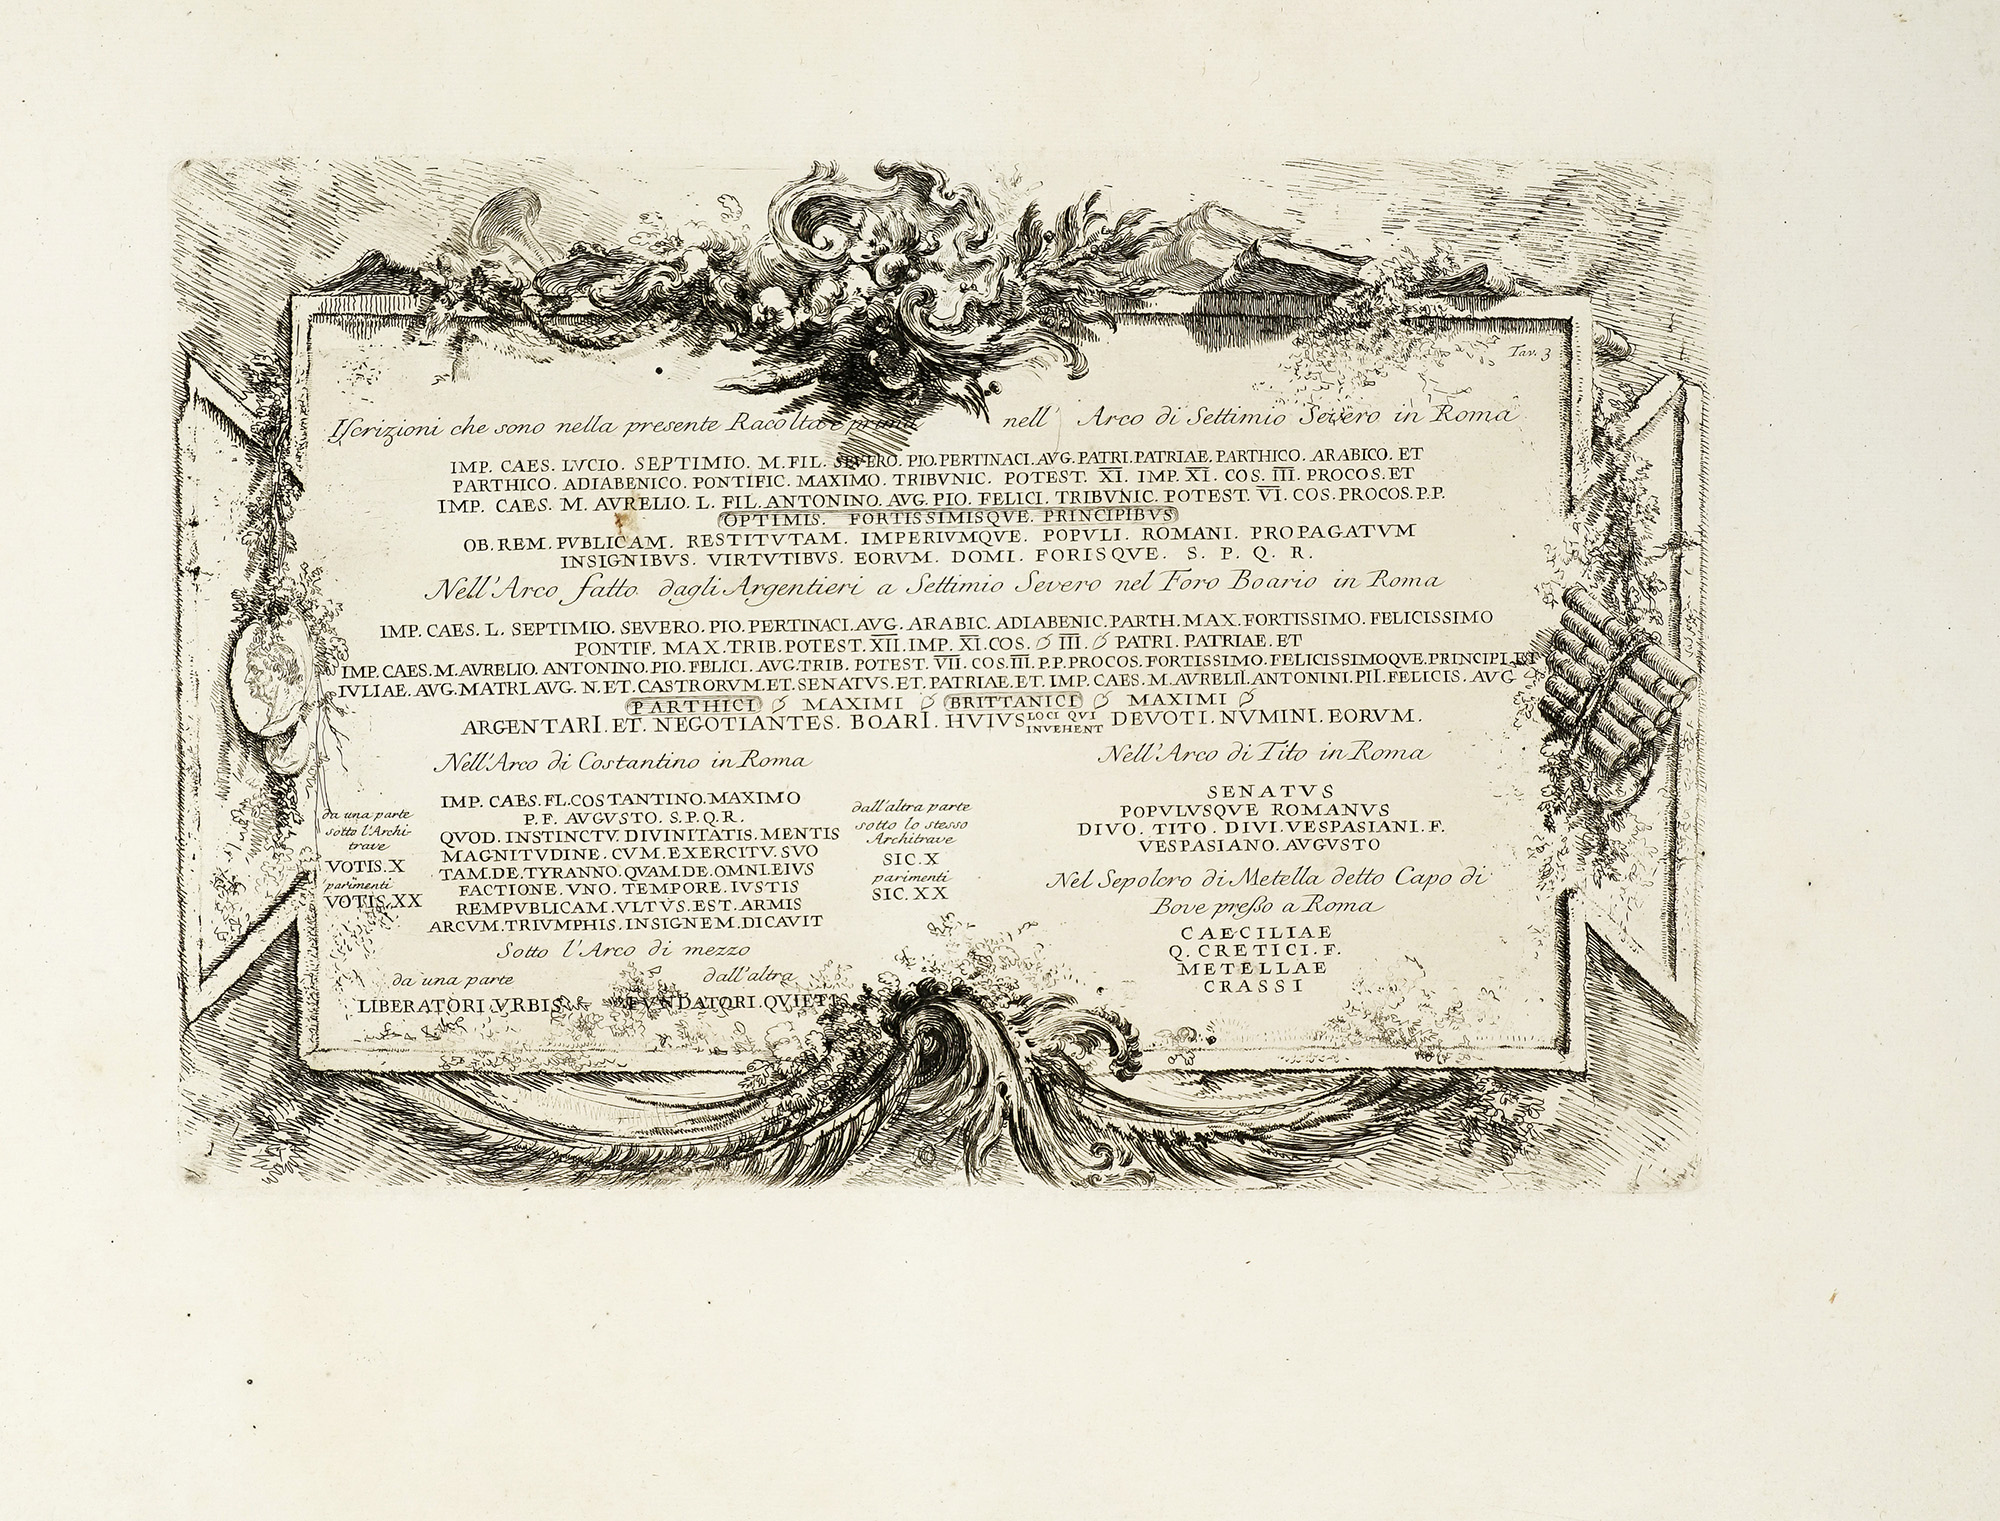 Tav. 3
Iscrizioni che sono nella presente Racolta e prima nell' Arco di Settimio Severo in Roma
IMP. CAES. LVCIO. SEPTIMIO. M. FIL. SEVERO. PIO. PERTINACI. AVG. PATRI. PATRIAE. PARTHICO. ARABICO. ET
PARTHICO. ADIABENICO. PONTIFIC. MAXIMO. TRIBVNIC. POTEST. XI. IMP. XI. COS. III. PROCOS. ET
IMP. CAES. M. AVRELIO. L. FIL. ANTONINO. AVG. PIO. FELICI. TRIBVNIC. POTEST. VI. COS. PROCOS. P. P.
OPTIMIS. FORTISSIMISQVE. PRINCIPIBVS
OB. REM. PVBLICAM. RESTITVTAM. IMPERIVMQVE. POPVLI. ROMANI. PROPAGATVM
INSIGNIBVS. VIRTVTIBVS. EORVM. DOMI. FORISQVE. S. P. Q. R.
Nell'Arco fatto dagli Argentieri a Settimio Severo nel Foro Boario in Roma
IMP. CAES. L. SEPTIMIO. SEVERO. PIO. PERTINACI. AVG. ARABIC. ADIABENIC. PARTH. MAX. FORTISSIMO. FELICISSIMO
PONTIF. MAX. TRIB. POTEST. XII. IMP. XI. COS. III. PATRI. PATRIAE. ET
IMP. CAES. M. AVRELIO. ANTONINO. PIO. FELICI. AVG. TRIB. POTEST. VII. COS. III. P. P. PROCOS. FORTISSIMO. FELICISSIMOQVE. PRINCIPI. ET
IVLIAE. AVG. MATRI. AVG. N. ET. CASTRORVM. ET. SENATVS. ET. PATRIAE. ET. IMP. CAES. M. AVRELII. ANTONINI. PII. FELICIS. AVG
PARTHICI MAXIMI BRITTANICI MAXIMI
ARGENTARI. ET. NEGOTIANTES. BOARI. HVIVS LOCI QVI INVEHENT DEVOTI. NVMINI. EORVM.
Nell'Arco di Costantino in Roma
da una parte
sotto l'Archi-
trave
VOTIS. X
parimenti
VOTIS. XX
IMP. CAES. FL. COSTANTINO. MAXIMO
P. F. AVGVSTO. S. P. Q. R.
QVOD. INSTINCTV. DIVINITATIS. MENTIS
MAGNITVDINE. CVM. EXERCITV. SVO
TAM. DE. TYRANNO. QVAM. DE. OMNI. EIVS
FACTIONE. VNO. TEMPORE. IVSTIS
REMPVBLICAM. VLTVS. EST. ARMIS
ARCVM. TRIVMPHIS. INSIGNEM. DICAVIT
dall'altra parte
sotto lo stesso
Architrave
SIC. X
parimenti
SIC. XX
Sotto l'Arco di mezzo
da una parte dall'altra
LIBERATORI. VRBIS FVNDATORI. QVIETIS
Nell'Arco di Tito in Roma
SENATVS
POPVLVSQVE ROMANVS
DIVO. TITO. DIVI. VESPASIANI. F.
VESPASIANO. AVGVSTO
Nel Sepolcro di Metella detto Capo di
Bove presso a Roma
CAECILIAE
Q. CRETICI. F.
METELLAE
CRASSI